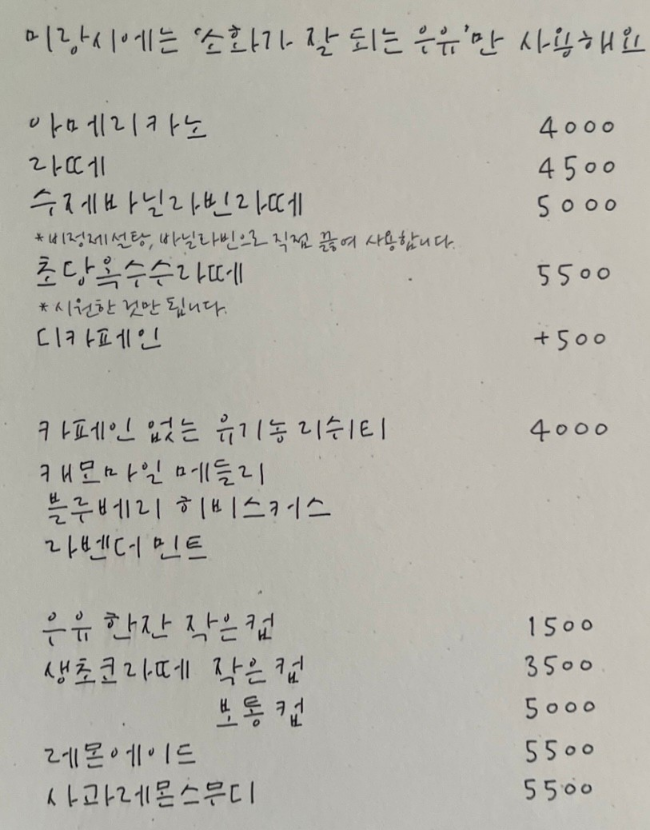 미랑시에는 '소화가 잘 되는 우유'만 사용해요
아메리카노 4000
라떼 4500
수제바닐라빈라떼 5000
*비정제설탕, 바닐라빈으로 직접 끓여 사용합니다.
초당옥수수라떼 5500
*시원한 것만 됩니다.
디카페인 +500
카페인 없는 유기농 리쉬티 4000
캐모마일 메들리
블루베리 히비스커스
라벤더 민트
우유 한잔 작은컵 1500
생초코라떼 작은컵 3500
보통컵 5000
레몬에이드 5500
사과레몬스무디 5500